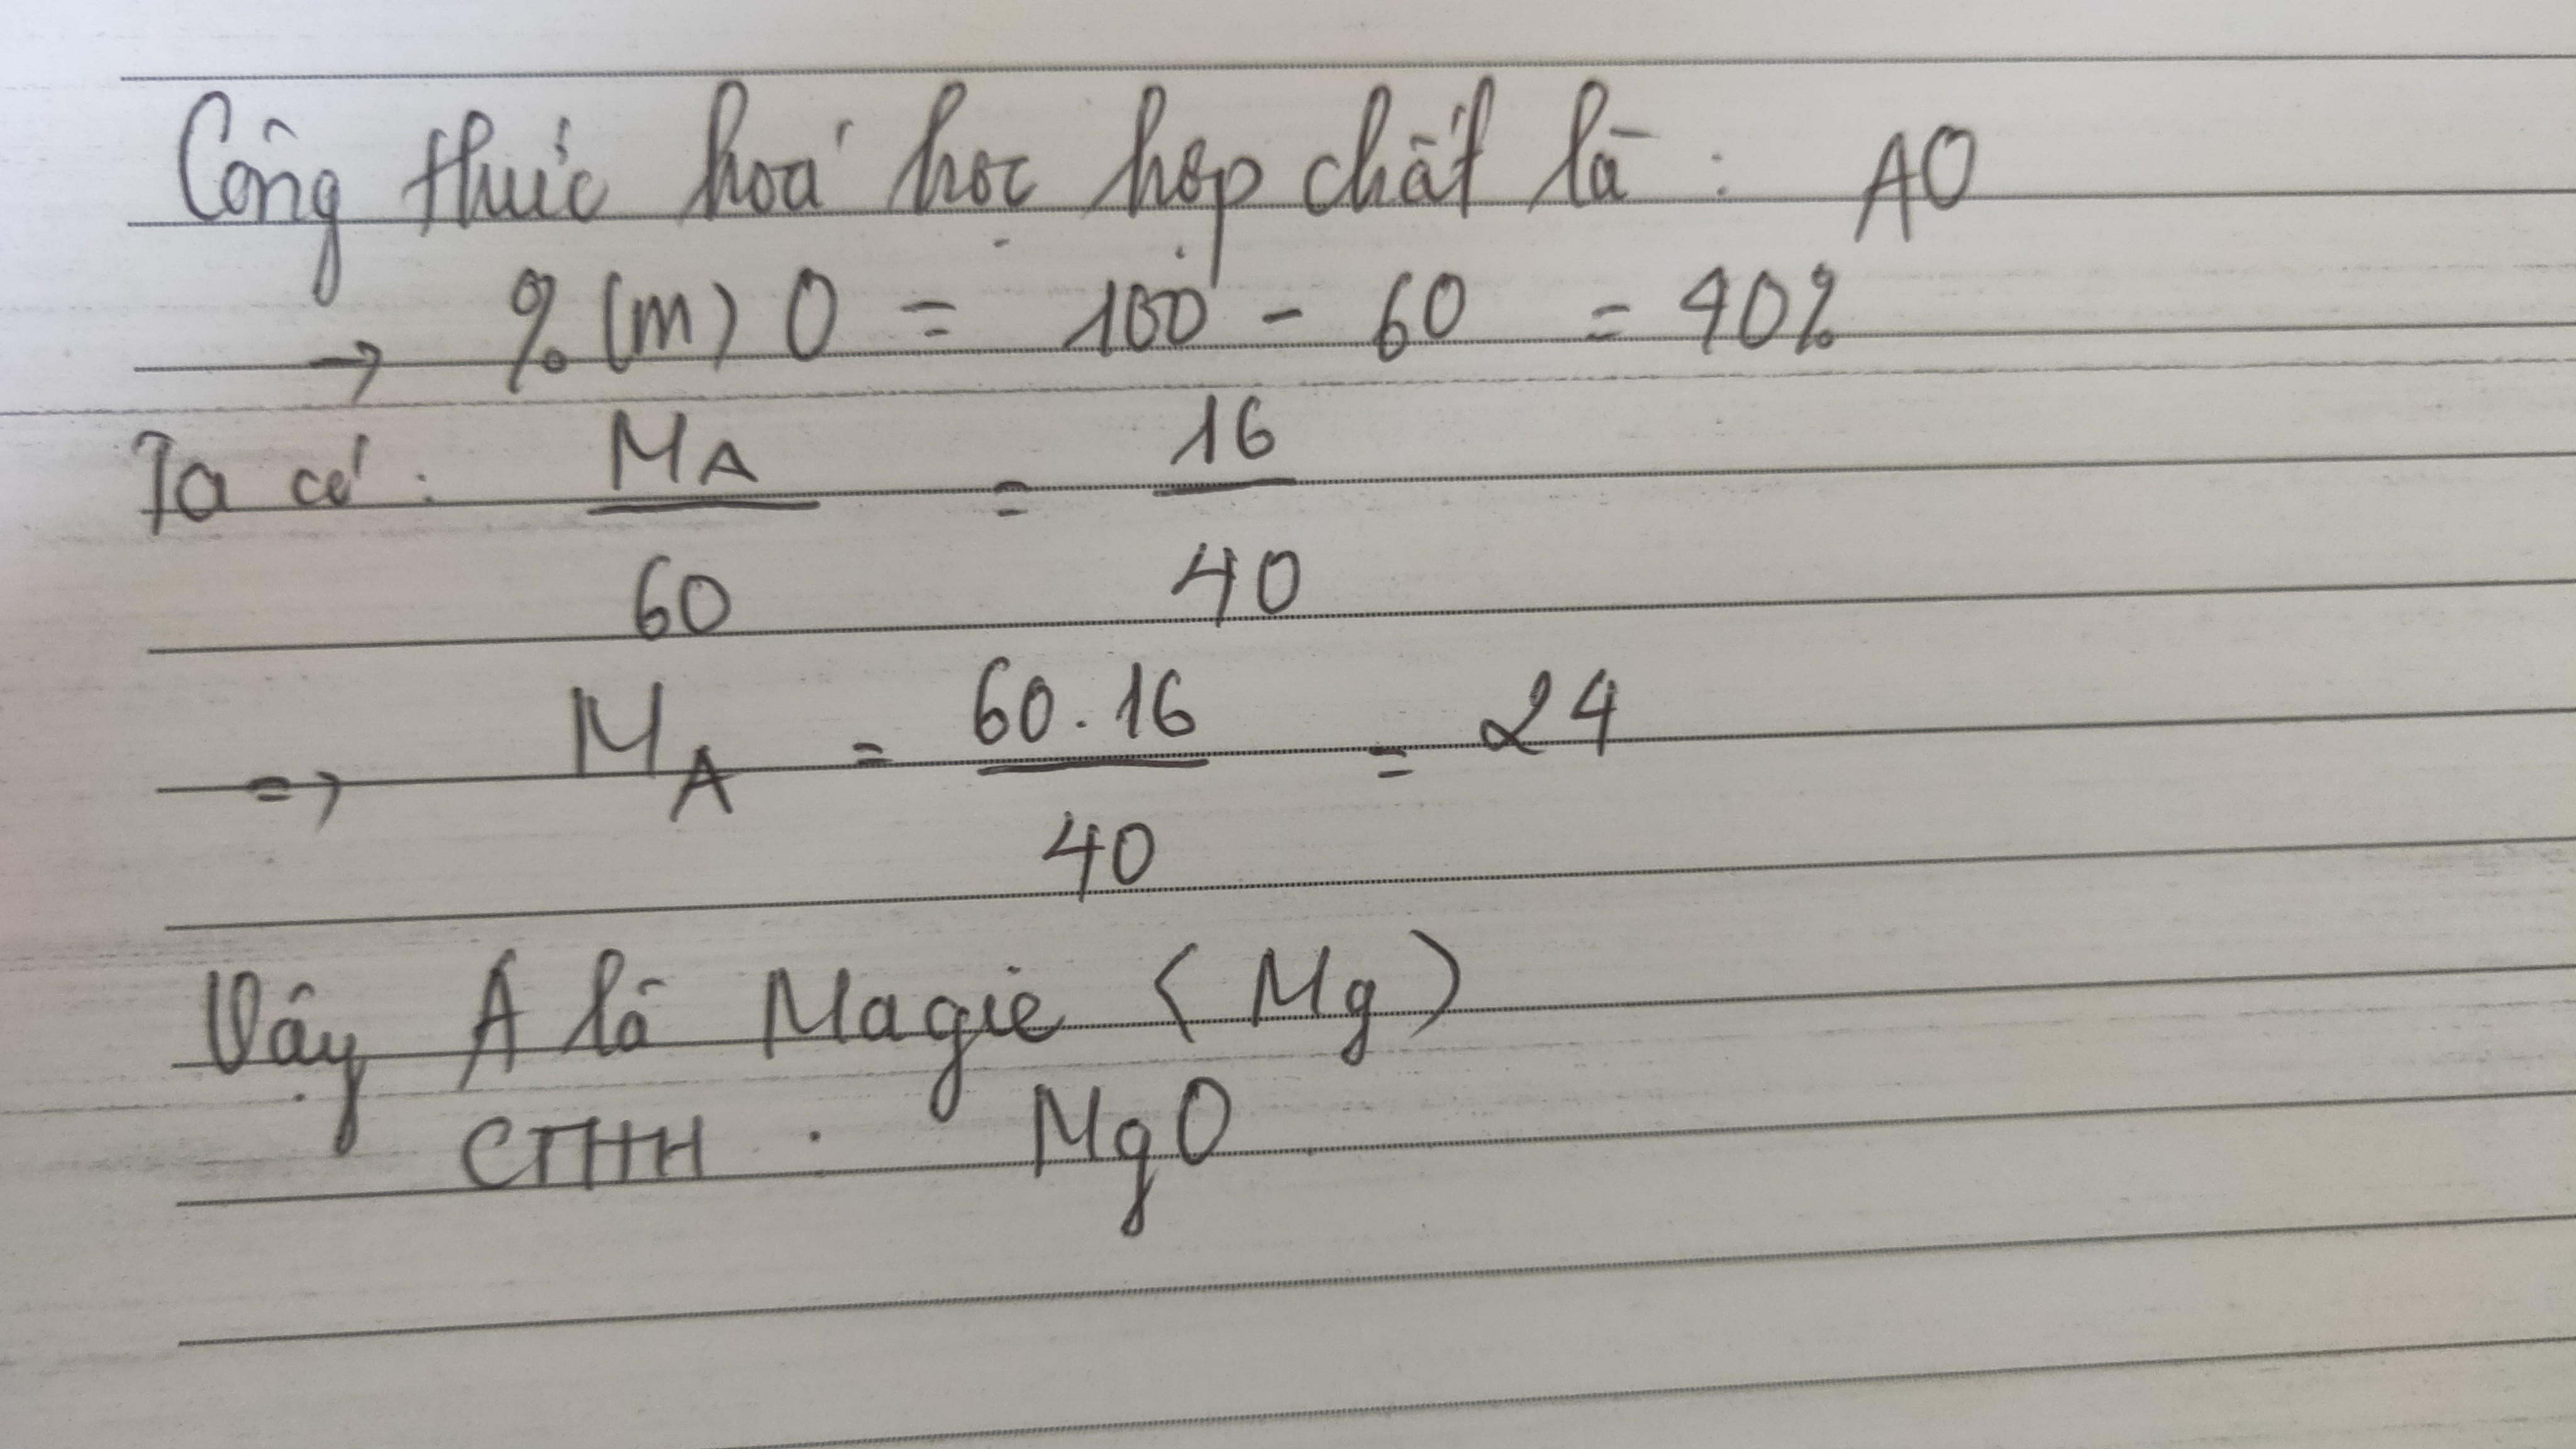 Công thức hoá học hợp chất là : AO
→ % (m) O = 100 - 60 = 40%
Ta có : MA / 60 = 16 / 40
=> MA = 60.16 / 40 = 24
Vậy A là Magie (Mg)
CTHH : MgO